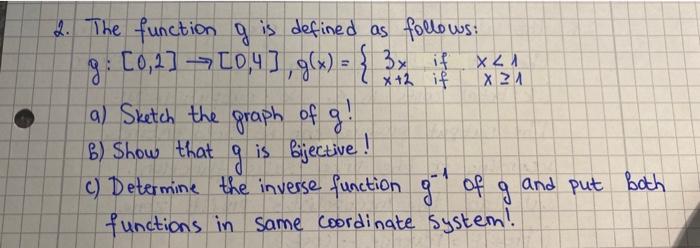 2. The function g is defined as follows:
g: [0,2] → [0,4], g(x) = { 3x if x < 1
x+2 if x ≥ 1
a) Sketch the graph of g!
B) Show that g is Bijective!
c) Determine the inverse function g⁻¹ of g and put both
functions in same coordinate system!